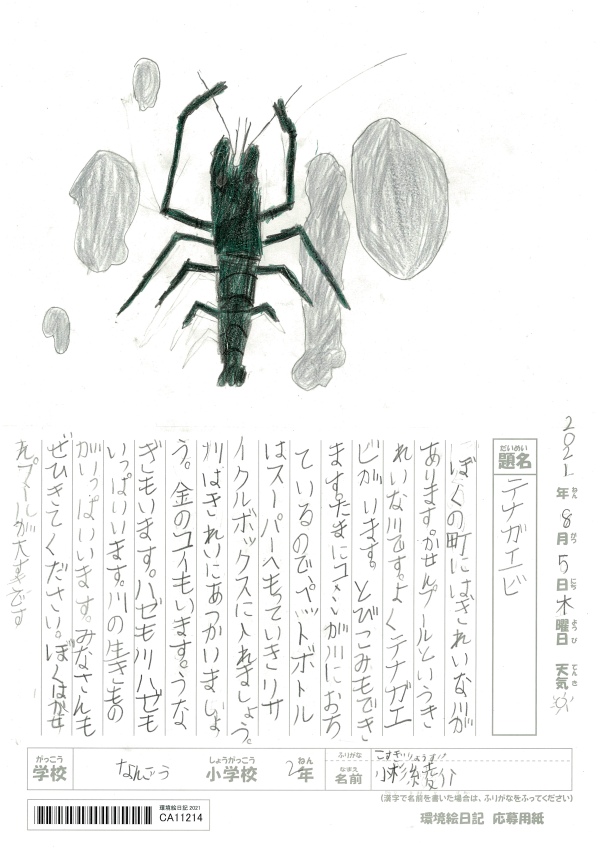 2021年8月5日木曜日 天気
ねん がつ にち ようび てんき
だいめい
題名 テナガエビ
ぼくの町にはきれいな川が
あります。かせんプールというき
れいな川です。よくテナガエ
ビがいます。とびこみもでき
ます。たまにゴミが川におち
ているので、ペットボトル
はスーパーへもっていきリサ
イクルボックスに入れましょう。
川はきれいにあつかいましょ
う。金のコイもいます。うな
ぎもいます。ハゼも川ハゼも
いっぱいいます。川の生きもの
がいっぱいいます。みなさんも
ぜひきてください。ぼくはかせ
んプールが大すきです
がっこう しょうがっこう ねん
学校 なんごう 小学校 2年
ふりがな こすぎりょうすけ
なまえ
名前 小杉綾介
(漢字で名前を書いた場合は、ふりがなをふってください)
環境絵日記 2021
CA11214
環境絵日記 応募用紙